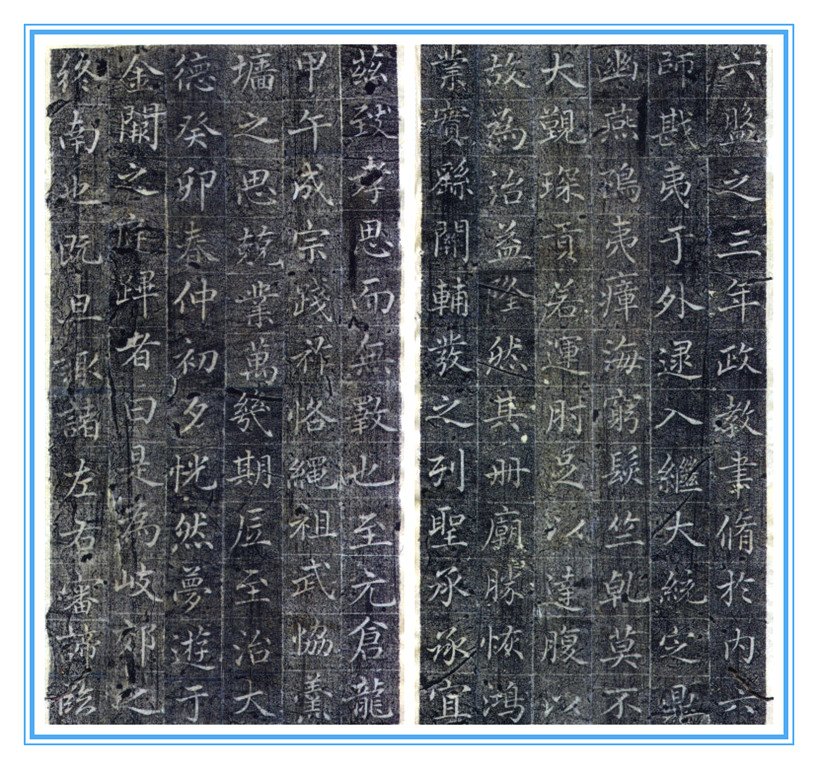 六盤之三年政教聿脩於内六
師戡夷于外逮入繼大統定鼎
幽燕隝夷瘴海窮髮竺乾莫不
大覲琛貢若運肘足以達腹以
故為治益隆然其冊廟勝恢鴻
業實繇關輔發之列聖承承宜
茲致孝思而無斁也至元倉龍
甲午成宗踐祚恪繩祖武恊羹
墻之思兢業萬幾期辰至治大
德癸卯春仲初夕恍然夢遊于
金闕之庭蹕者曰是為岐郊之
終南也既旦諏諸左右審諦臨